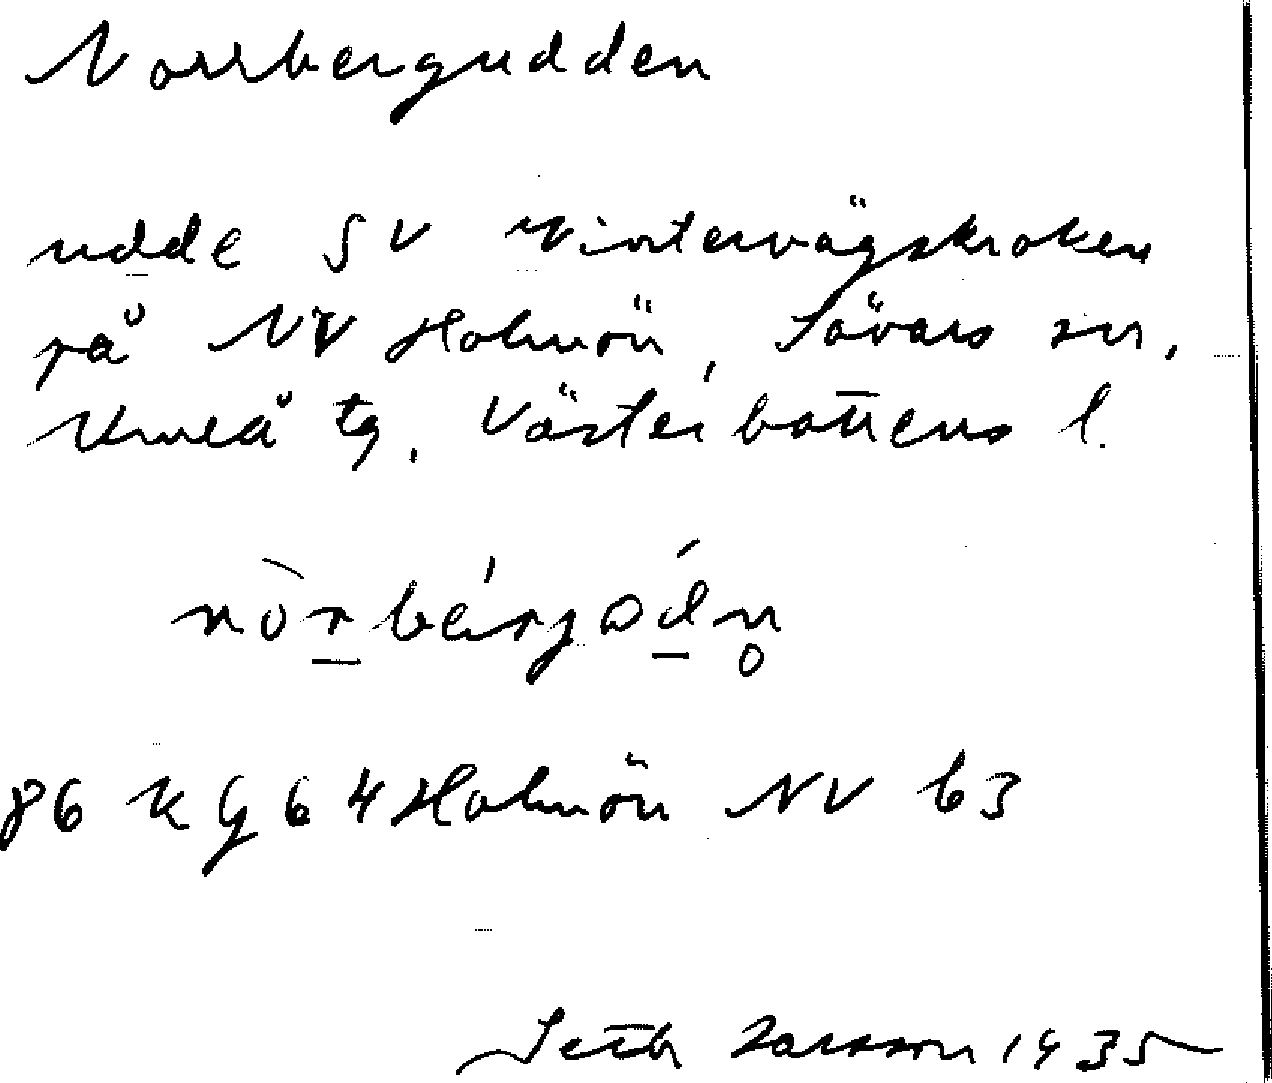 Norrbergudden
udde SV Vintervägskroken
på NV Holmön, Sävars sn,
Umeå tg, Västerbottens l.
86 K G b 4 Holmön NV b3
Seth Larsson 1935